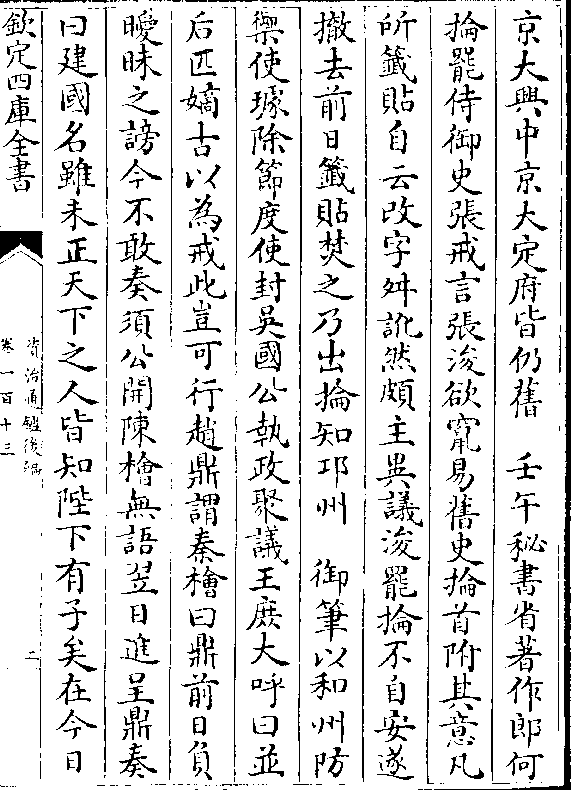 京大興中京大定府皆仍舊　壬午秘書省著作郎何
掄罷侍御史張戒言張浚欲竄易舊史掄首附其意凡
所籤貼自云改字舛訛然頗主異議浚罷掄不自安遂
撤去前日籤貼焚之乃出掄知邛州　御筆以和州防
禦使璩除節度使封吳國公執政聚議王庶大呼曰並
后匹嫡古以為戒此豈可行趙鼎謂秦檜曰鼎前日負
曖昧之謗今不敢奏須公開陳檜無語翌日進呈鼎奏
曰建國名雖未正天下之人皆知陛下有子矣在今日
欽定四庫全書
資治通鑑後編
卷一百十三
二